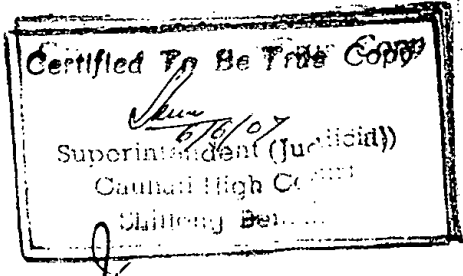 Certified To Be True Copy
6/6/07
Superintendent (Judicial)
Gauhati High Court
Shillong Bench